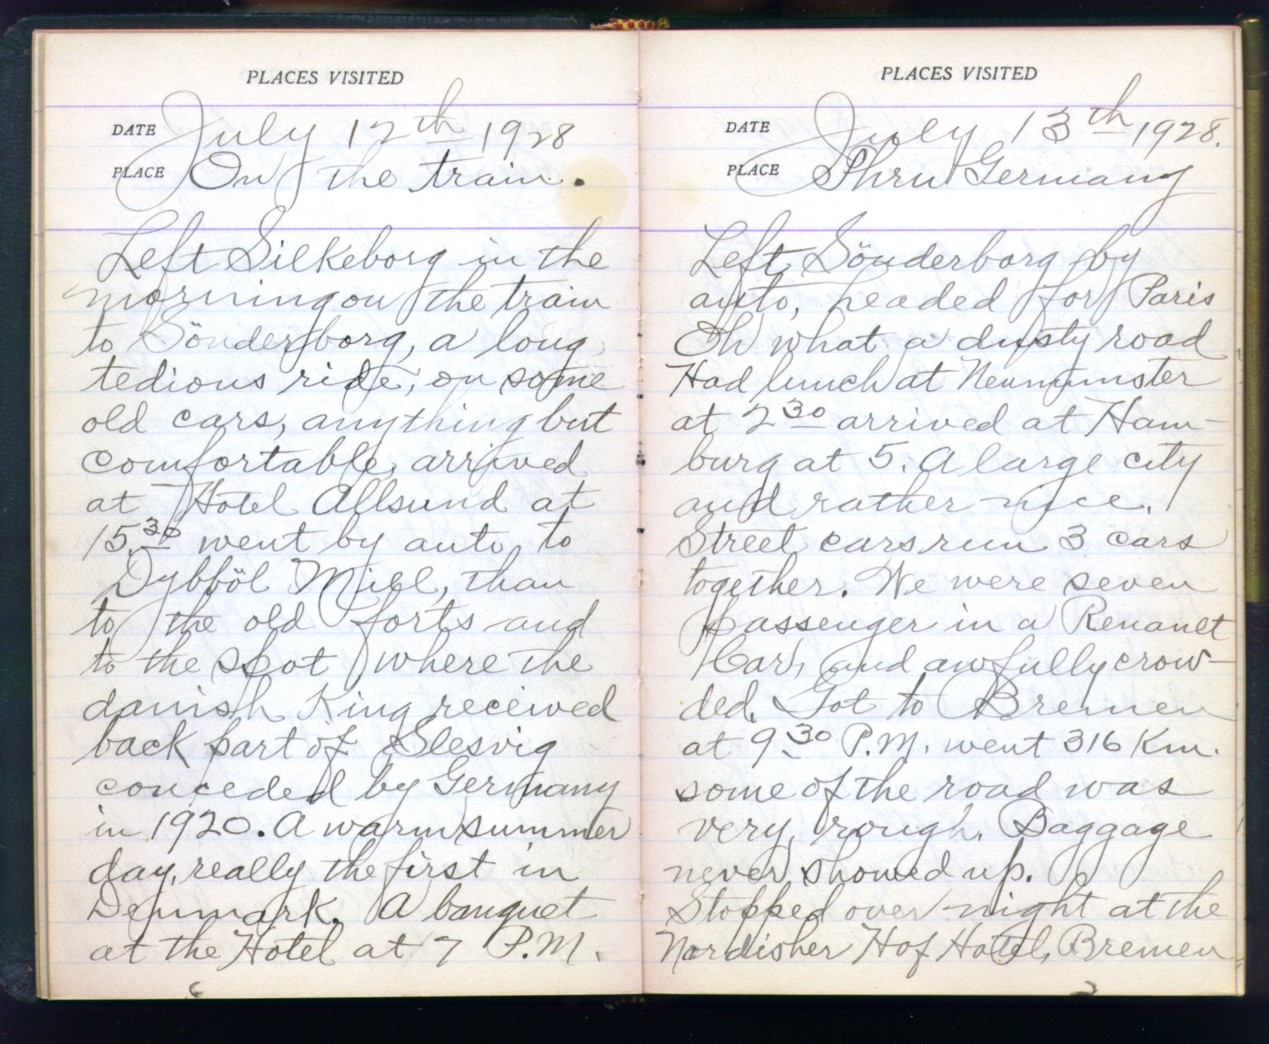 PLACES VISITED
DATE July 12th 1928
PLACE On the train.
Left Silkeborg in the
morning on the train
to Sönderborg, a long
tedious ride, on some
old cars, anything but
comfortable, arrived
at Hotel Allsund at
15.30 went by auto to
Dybböl Mill, than
to the old forts and
to the spot where the
danish King received
back part of Slesvig
conceded by Germany
in 1920. A warm summer
day, really the first in
Denmark. A banquet
at the Hotel at 7 P.M.
PLACES VISITED
DATE July 13th 1928.
PLACE Thru Germany
Left Sönderborg by
auto, headed for Paris
Oh what a dusty road
Had lunch at Neumunster
at 2 30 arrived at Ham-
burg at 5. A large city
and rather nice.
Street cars run 3 cars
together. We were seven
passenger in a Renault
Car, and awfully crow-
ded. Got to Bremen
at 9 30 P.M. went 316 Km.
some of the road was
very rough. Baggage
never showed up.
Stopped over night at the
Nordisher Hof Hotel, Bremen